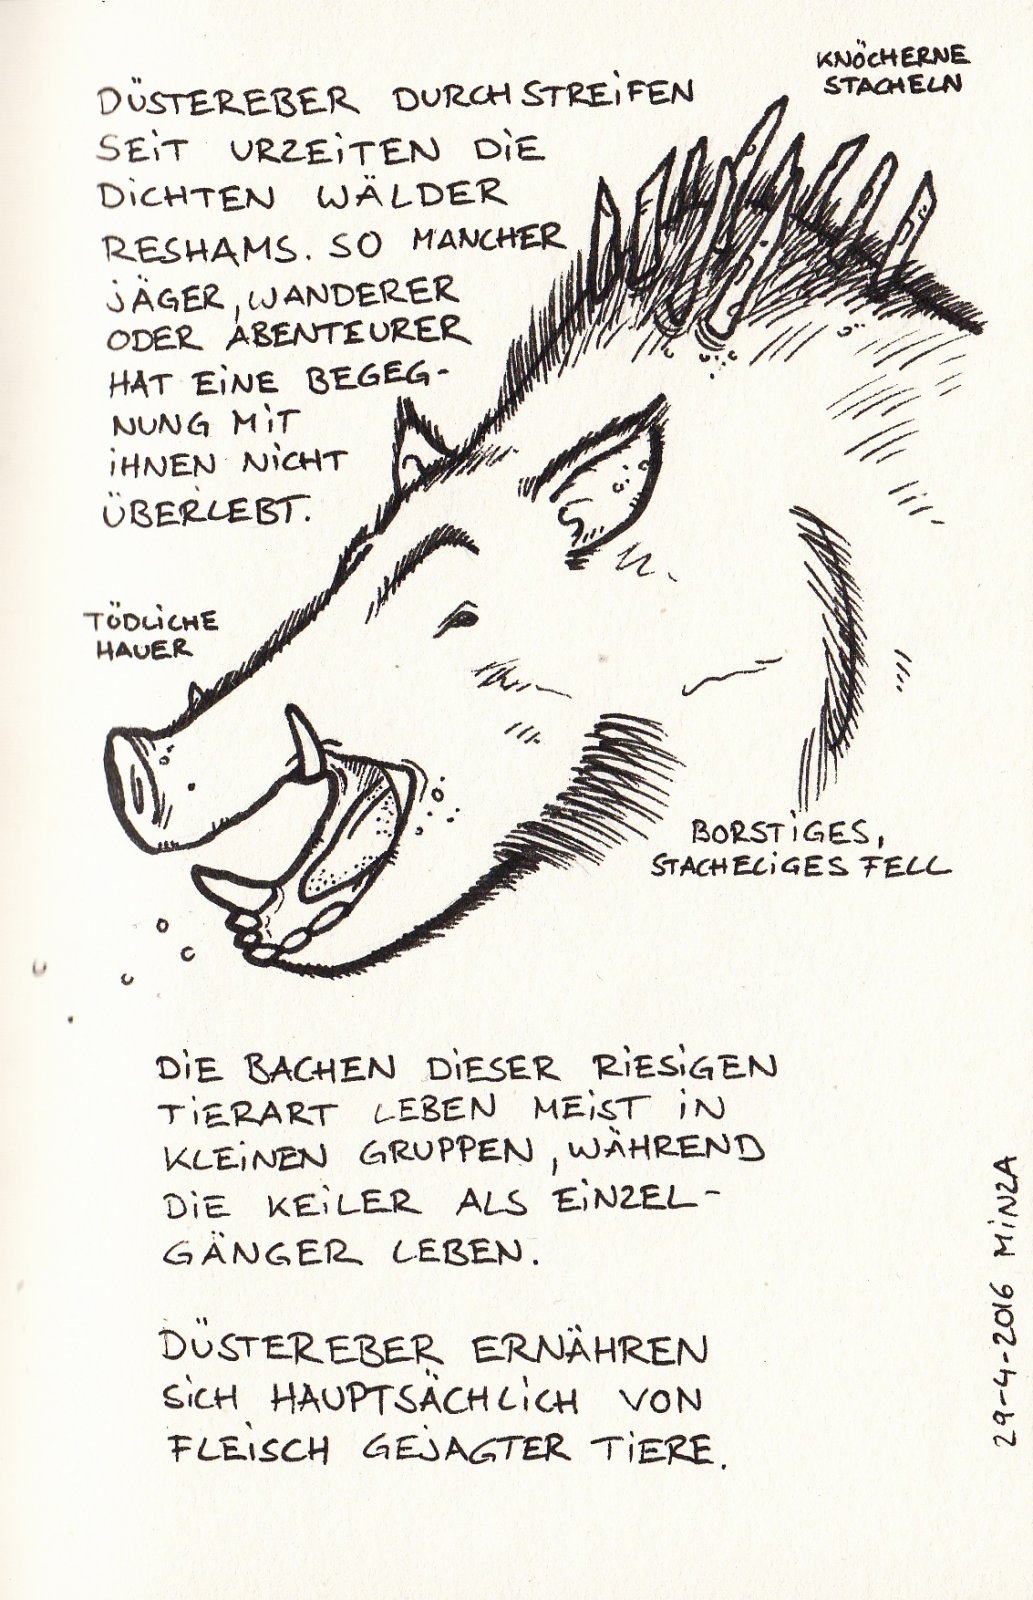 KNÖCHERNE
STACHELN
DÜSTEREBER DURCHSTREIFEN
SEIT URZEITEN DIE
DICHTEN WÄLDER
RESHAMS. SO MANCHER
JÄGER, WANDERER
ODER ABENTEURER
HAT EINE BEGEG-
NUNG MIT
IHNEN NICHT
ÜBERLEBT.
TÖDLICHE
HAUER
BORSTIGES,
STACHELIGES FELL
DIE BACHEN DIESER RIESIGEN
TIERART LEBEN MEIST IN
KLEINEN GRUPPEN, WÄHREND
DIE KEILER ALS EINZEL-
GÄNGER LEBEN.
DÜSTEREBER ERNÄHREN
SICH HAUPTSÄCHLICH VON
FLEISCH GEJAGTER TIERE.
29-4-2016 MINZA